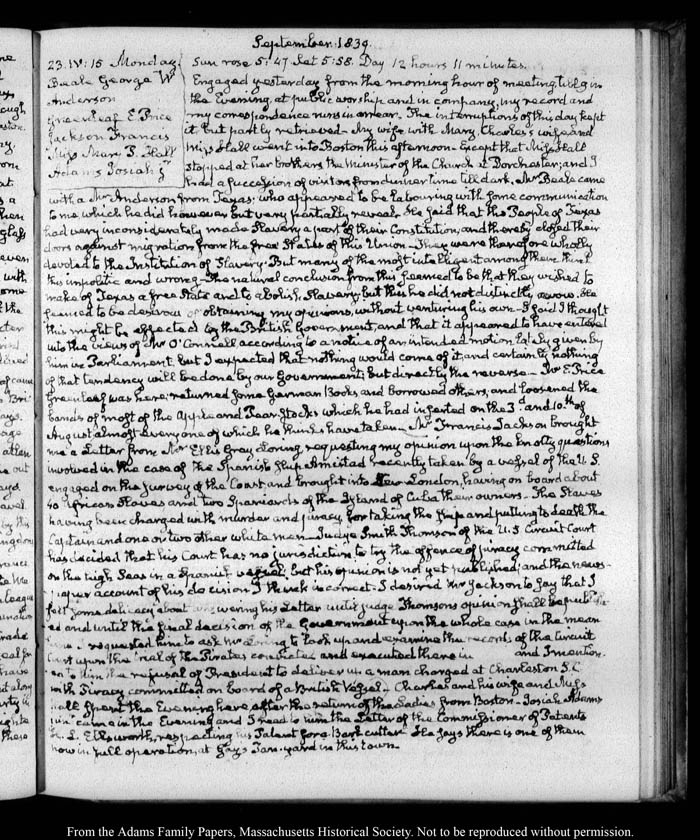 September 1839.
23. IV: 15 Monday. Sun rose 5:47 Set 5:58. Day 12 hours 11 minutes.
Beale George W
Anderson
Greenleaf E Price
Jackson Francis
Miss Mary T. Hall
Adams Josiah jr
Engaged yesterday from the morning hour of meeting, till 9 in
the Evening, at public worship and in company, my record and
my correspondence runs in arrear. The interruptions of this day kept
it but partly retrieved. My wife with Mary, Charles's wife and
Miss Hall went into Boston this afternoon. Except that Miss Hall
stopped at her brothers the Minister of the Church at Dorchester; and I
had a succession of visitors from dinner time till dark. Mr Beale came
with a Mr Anderson from Texas; who appeared to be labouring with some communication
to me, which he did however but very partially reveal. He said that the People of Texas
had very inconsiderately made Slavery a part of their Constitution, and thereby closed their
doors against migration from the free States of this Union. They were therefore wholly
devoted to the Institution of Slavery. But many of the most intelligent among them think
this impolitic and wrong. The natural conclusion from this seemed to be that they wished to
make of Texas a free State and to abolish Slavery but this he did not distinctly avow. He
seemed to be desirous of obtaining my opinions, without venturing his own. I said I thought
this might be effected by the British Government, and that it appeared to have entered
into the views of Mr O'Connell according to a notice of an intended motion lately given by
him in Parliament, but I expected that nothing would come of it, and certainly nothing
of that tendency will be done by our Government; but directly the reverse. Mr E. Price
Greenleaf was here; returned some German Books and borrowed others, and loosened the
bands of most of the Apple and Pear Stocks which he had inserted on the 3d and 10th of
August almost every one of which he thinks have taken. Mr Francis Jackson brought
me a Letter from Mr Ellis Gray Loring requesting my opinion upon the knotty questions
involved in the case of the Spanish ship Amistad recently taken by a vessel of the U. S.
engaged on the survey of the Coast and brought into New London, having on board about
40 African Slaves and two Spaniards of the Island of Cuba their owners. The Slaves
having been charged with murder and piracy for taking the ship and putting to death the
Captain and one or two other white men. Judge Smith Thomson of the U.S Circuit Court
has decided that his Court has no jurisdiction to try the offence of piracy committed
on the high Seas in a Spanish vessel, but his opinion is not yet published; and the news-
paper account of his decision I think incorrect. I desired Mr Jackson to say that I
felt some delicacy about answering his Letter until Judge Thomsons opinion shall be publish-
ed and until the final decision of the Government upon the whole case in the mean
time I requested him to ask Mr Loring to look up and examine the records of the Circuit
Court upon the trial of the Pirates convicted and executed there in and I mention-
ed to him the refusal of President to deliver up a man charged at Charleston S. C
with Piracy committed on board of a British Vessel. Charles and his wife and Miss
Hall spent the Evening here after the return of the Ladies from Boston. Josiah Adams
junr came in the Evening and I read to him the Letter of the Commissioner of Patents
H. L. Ellsworth, respecting his Patent for a Bark cutter. He says there is one of them
now in full operation, at Gays Tan-yard in this town.
From the Adams Family Papers, Massachusetts Historical Society. Not to be reproduced without permission.